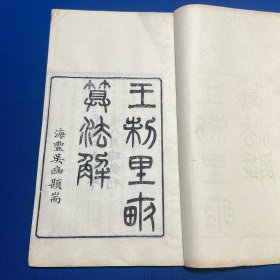 王制里畝
算法解
海豐吳豳題耑